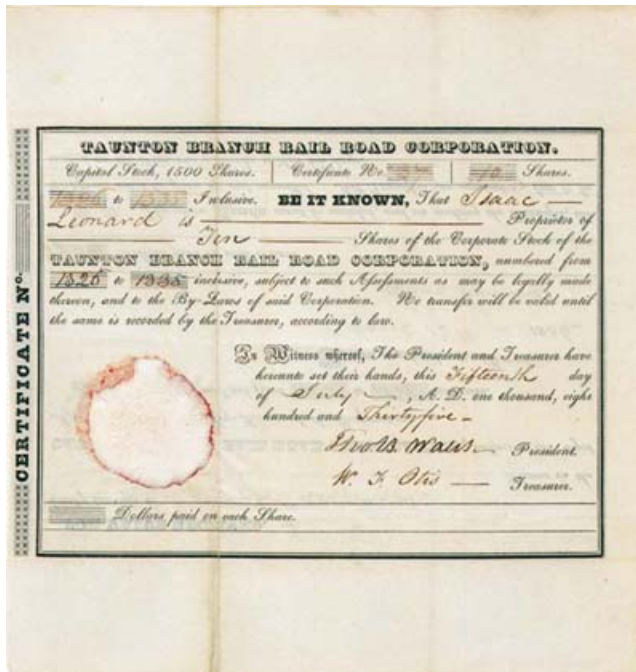 TAUNTON BRANCH RAIL ROAD CORPORATION.
Capital Stock, 1500 Shares. Certificate No. 10 Shares.
1326 to 1335 Inclusive. BE IT KNOWN, That Isaac
Leonard is Proprietor of
Ten Shares of the Corporate Stock of the
TAUNTON BRANCH RAIL ROAD CORPORATION, numbered from
1326 to 1335 inclusive, subject to such Assessments as may be legally made
thereon, and to the By-Laws of said Corporation. No transfer will be valid until
the same is recorded by the Treasurer, according to law.
In Witness whereof, The President and Treasurer have
hereunto set their hands, this Fifteenth day
of July, A. D. one thousand, eight
hundred and Thirtyfive
Thos B Wales President.
W. F. Otis Treasurer.
Dollars paid on each Share.
CERTIFICATE No.